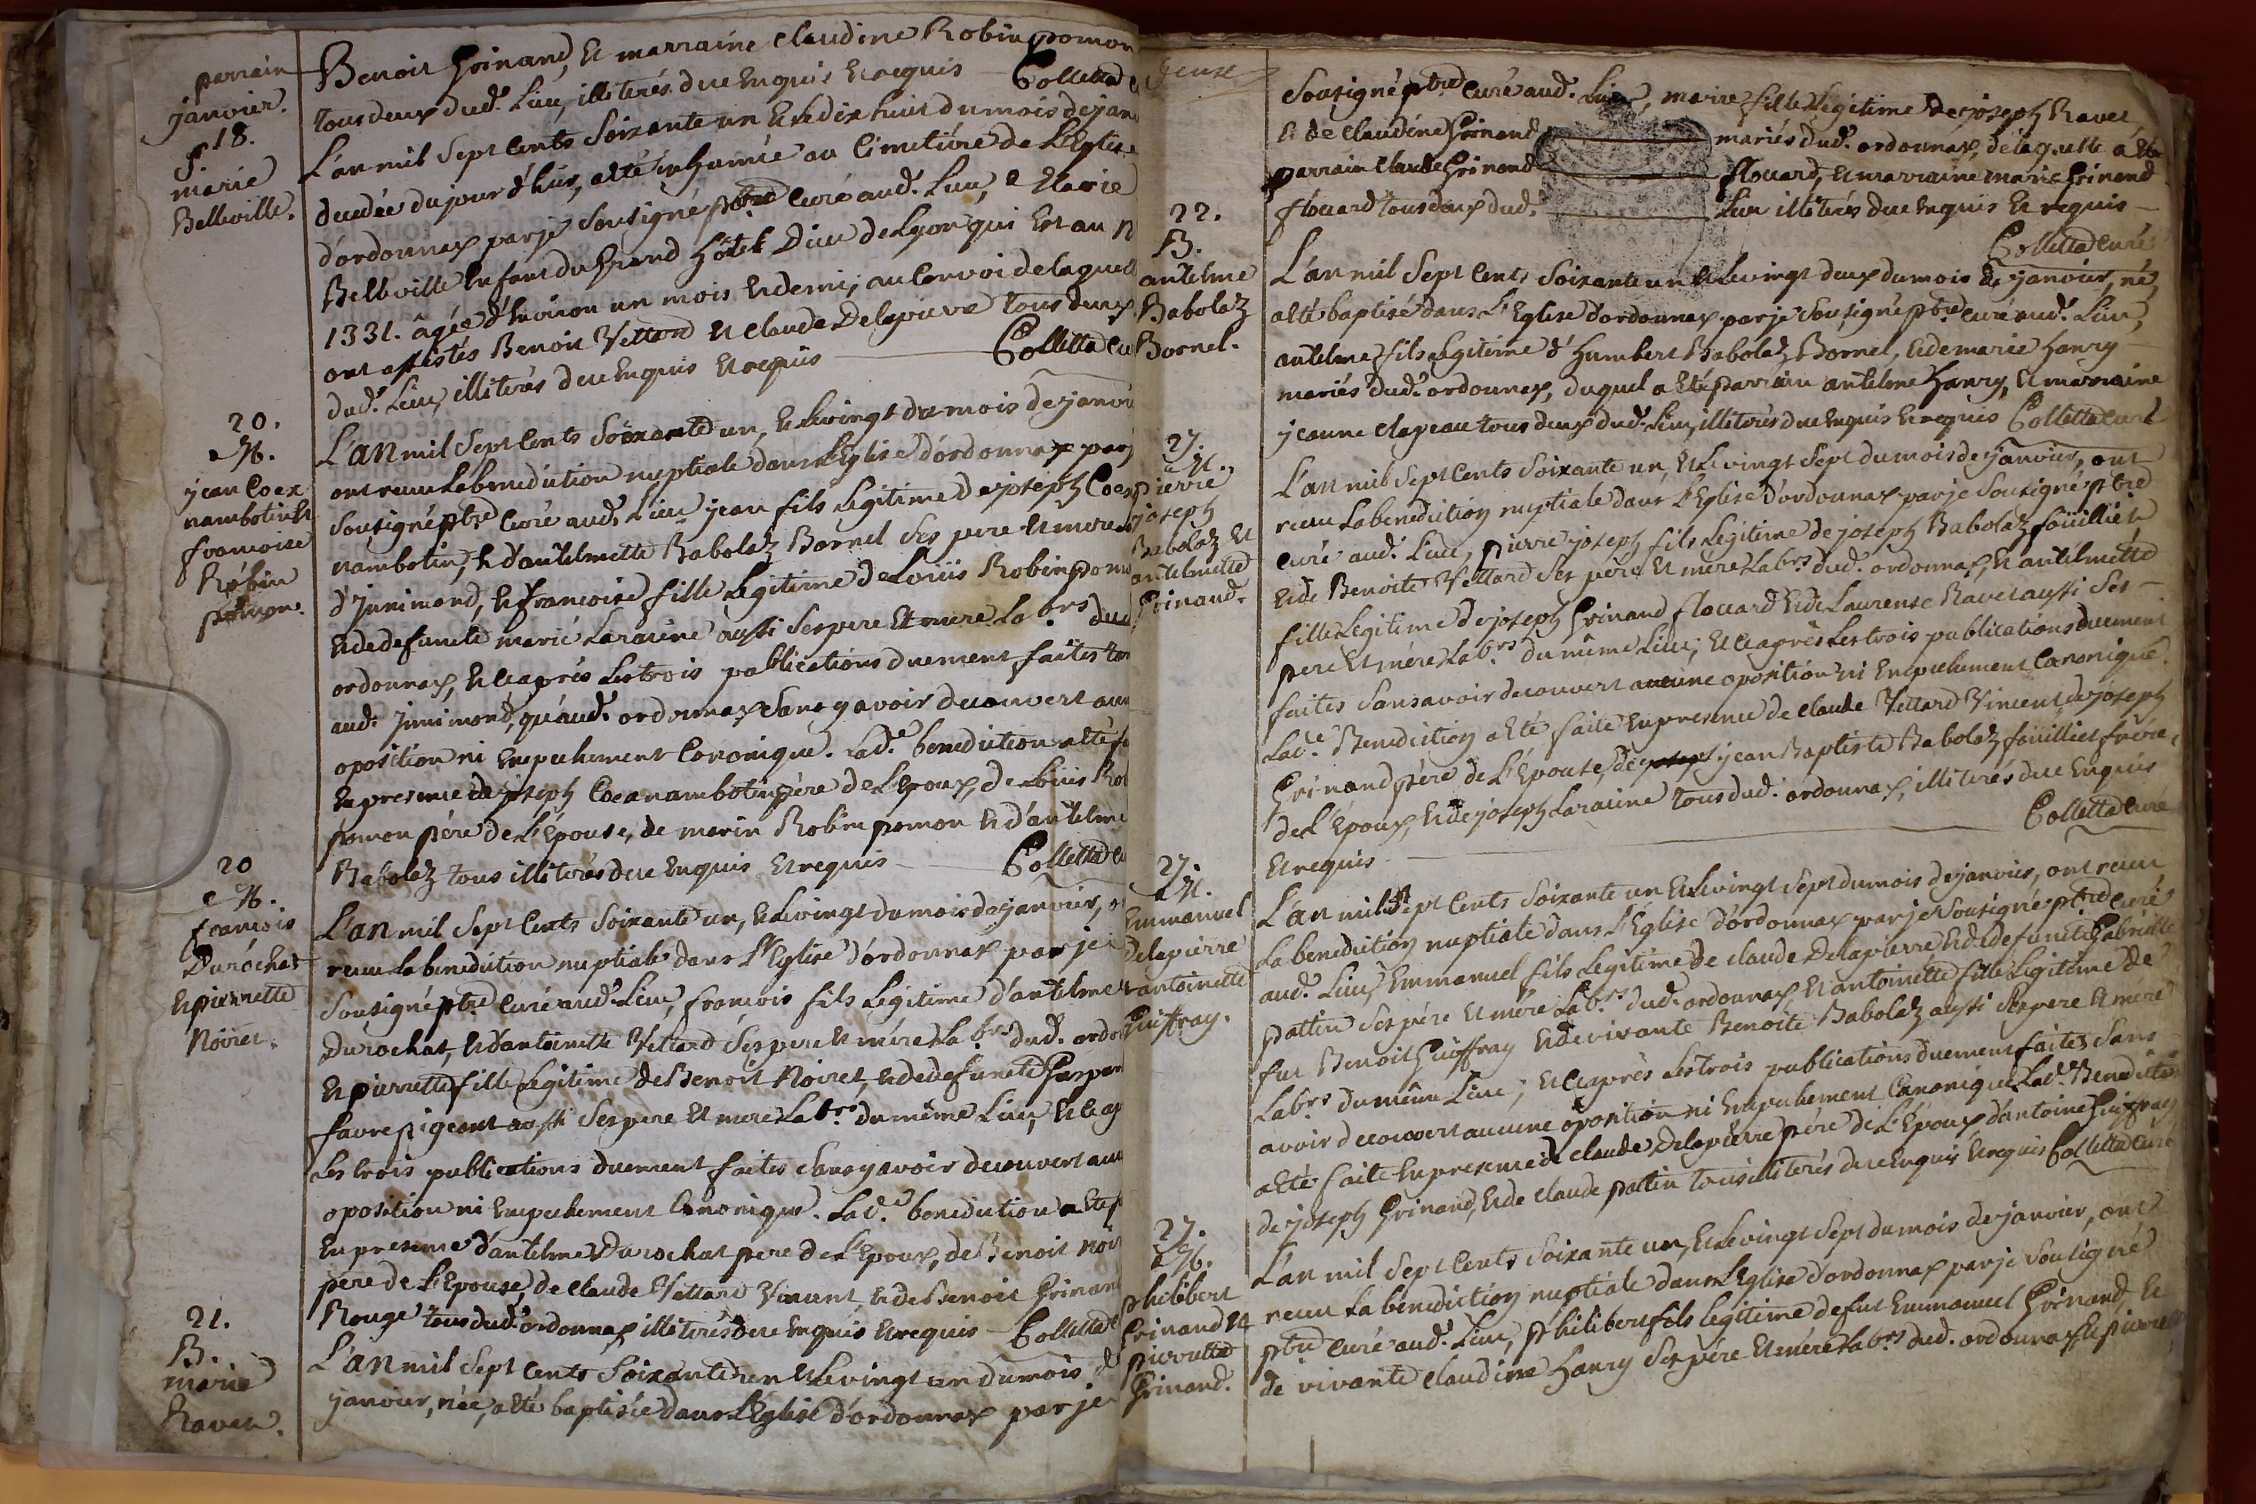 parrain
janvier.
18.
S.
marie
Belleville.
Benoit Grinand, et marraine Claudine Robin pomon
tous deux dud. Lieu, illiterés due enquis et requis Colletta
L'an mil Sept Cents Soixante un et le dix huit du mois de jan
decedée du jour d'hier, a eté inhumée au Cimetiére de L'Eglise
d'ordonnax par je Sousigné ptre Curé aud. Lieu, Marie
Belleville Enfant du grand Hôtel Dieu de Lyon qui Est au N
1331. âgée d'Environ un mois et demi, au Convoi de laquelle
ont assistés Benoit Vettard et Claude Delapierre tous deux
dud. Lieu, illiterés due Enquis et requis Colletta Cu
20.
M.
jean Coex
nambotin et
francoise
Robin
pomon.
L'an mil Sept Cents Soixante un, et le vingt du mois de janvi
ont receu La benediction nuptiale dans L'Eglise d'ordonnax par j
Sousigné ptre Curé aud. Lieu jean fils Legitime de joseph Coex
nambotin, et d'antelmette Babolaz Bornel Ses pere et mere
d'Jnnimond, et francoise fille Legitime de Loüis Robin pomo
et de defuncte marie Laraine aussi Ses pere et mere Labrs dud
ordonnax, et c'aprés Les trois publications duement faites tan
aud. Jnnimond, qu'aud. ordonnax Sans y avoir decouvert auc
oposition ni Empechement Canonique. Lad.e benediction a eté f
En presence de joseph Coex nambotin pére de L'Epoux, de Loüis Ro
pomon pére de L'Epouse, de marin Robin pomon et d'antelme
Babolaz tous illiterés due enquis et requis Colletta Cu
20
M.
francois
Durochat
et pierrette
Noiret.
L'an mil Sept Cents Soixante un, et le vingt du mois de janvier, o
receu La benediction nuptiale dans L'Eglise d'ordonnax par je
Sousigné ptre Curé aud. Lieu, francois fils Legitime d'antelme
Durochat, et d'antoinette Vettard Ses pere et mére Labrs dud. ordo
et pierrette fille Legitime de Benoit Noiret, et de defuncte Gaspar
favre pigeont aussi Ses pere et mere Labrs du même Lieu, et c'ap
Les trois publications duement faites Sans y avoir decouvert auc
oposition ni Empechement Canonique. Lad.e benediction a eté f
En presence d'antelme Durochat pere de L'Epoux, de Benoit Noir
pére de L'Epouse, de Claude Vettard Vincent et de Benoit Grinand
Rouge tous dud. ordonnax illiterés due enquis et requis Colletta
21.
B.
marie
Ravet.
L'an mil Sept Cents Soixante un et Le vingt un du mois d
janvier, née, a eté baptisée dans L'Eglise d'ordonnax par je
Sousigné ptre Curé aud. Lieu, marie fille Legitime de joseph Ravet
et de Claudine Grinand mariés dud. ordonnax, de laquelle a eté
parrain Claude Grinand flouard, et marraine marie Grinand
flouard tous deux dud. Lieu illiterés due enquis et requis
Colletta Curé
22.
B.
antelme
Babolaz
Bornel.
L'an mil Sept Cents Soixante un et Le vingt deux du mois de janvier, né,
a eté baptisé dans L'Eglise d'ordonnax par je Sousigné ptre Curé aud. Lieu,
antelme fils Legitime d'Humbert Babolaz Bornel, et de marie Hanry
mariés dud. ordonnax, duquel a eté parrain antelme Hanry, et marraine
jeanne Clapeau tous deux dud. Lieu, illiterés due enquis et requis Colletta Curé
27.
M.
pierre
joseph
Babolaz et
antelmette
Grinand.
L'an mil Sept Cents Soixante un, et Le vingt Sept du mois de janvier, ont
receu La benediction nuptiale dans L'Eglise d'ordonnax par je Sousigné ptre
Curé aud. Lieu, pierre joseph fils Legitime de joseph Babolaz foüillet
et de Benoite Vettard Ses pére et mére Labrs dud. ordonnax, et antelmette
fille Legitime de joseph Grinand flouard et de Laurense Ravet aussi Ses
pere et mére Labrs du même Lieu; et c'aprés Les trois publications duement
faites Sans avoir decouvert aucune oposition ni Empechement Canonique.
Lad.e Benediction a eté faite En presence de Claude Vettard Vincent, de joseph
Grinand pére de L'Epouse, de jean Baptiste Babolaz foüillet frére
de L'Epoux, et de joseph Laraine tous dud. ordonnax, illiterés due Enquis
et requis Colletta Curé
27.
M.
Emmanuel
Delapierre
antoinette
Guiffray.
L'an mil Sept Cents Soixante un et Le vingt Sept du mois de janvier, ont receu
La benediction nuptiale dans L'Eglise d'ordonnax par je Sousigné ptre Curé
aud. Lieu, Emmanuel fils Legitime de Claude Delapierre et de defuncte Gabrielle
pattin Ses pére et mére Labrs dud. ordonnax, et antoinette fille Legitime de
feu Benoit Guiffray et de vivante Benoite Babolaz aussi Ses pere et mére
Labrs du même Lieu; et c'aprés Les trois publications duement faites Sans
avoir decouvert aucune oposition ni Empechement Canonique Lad.e Benediction
a eté faite En presence de Claude Delapierre pére de L'Epoux d'antoine Guiffray
de joseph Grinand, et de Claude pattin tous illiterés due enquis et requis Colletta Curé
27.
M.
philibert
Grinand et
pierrette
Grinand.
L'an mil Sept Cents Soixante un, et Le vingt Sept du mois de janvier, ont
receu La benediction nuptiale dans L'Eglise d'ordonnax par je Sousigné
ptre Curé aud. Lieu, philibert fils legitime de feu Emmanuel Grinand, et
de vivante Claudine Hanry Ses pére et mére Labrs dud. ordonnax, et pierrette